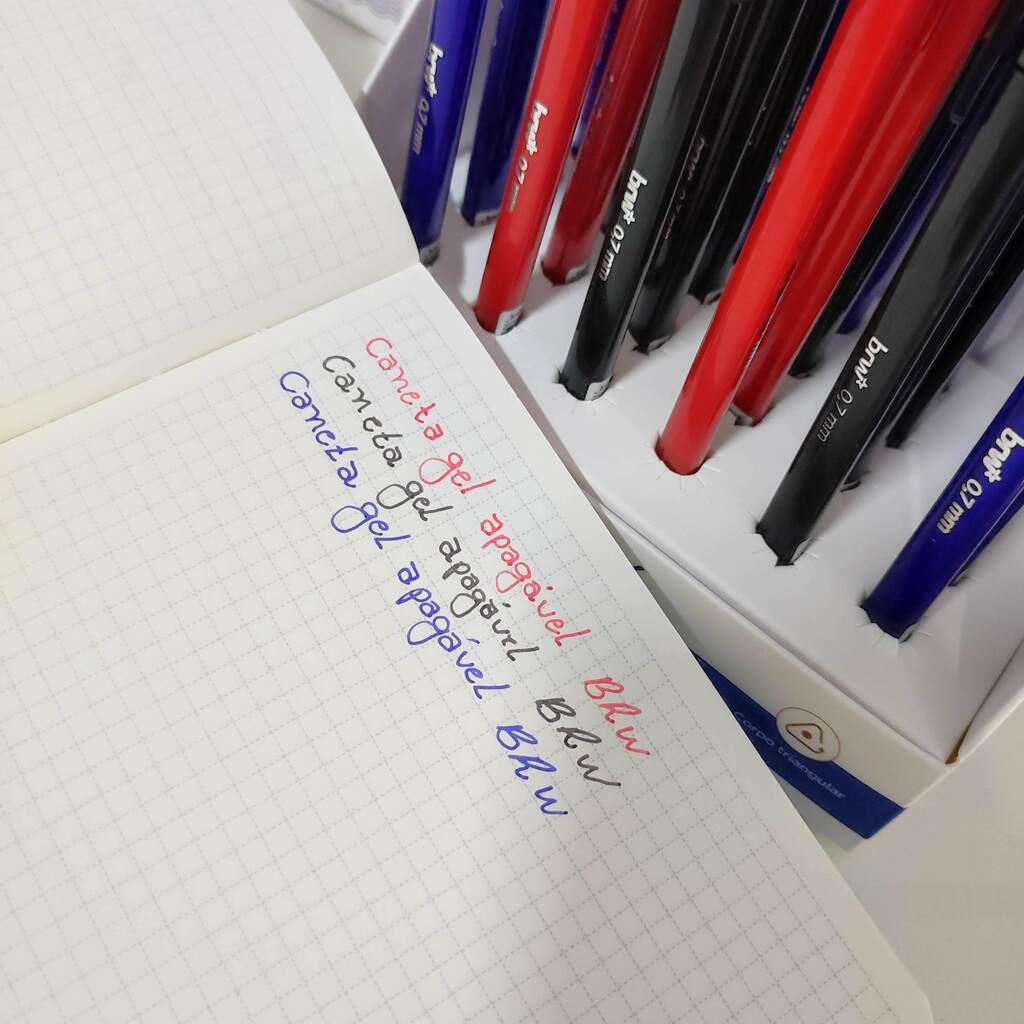 Caneta gel apagável BRW
Caneta gel apagável BRW
Caneta gel apagável BRW
brw+ 0,7 mm
brw+ 0,7 mm
brw+ 0,7 mm
brw+ 0,7 mm
brw+ 0,7 mm
corpo triangular